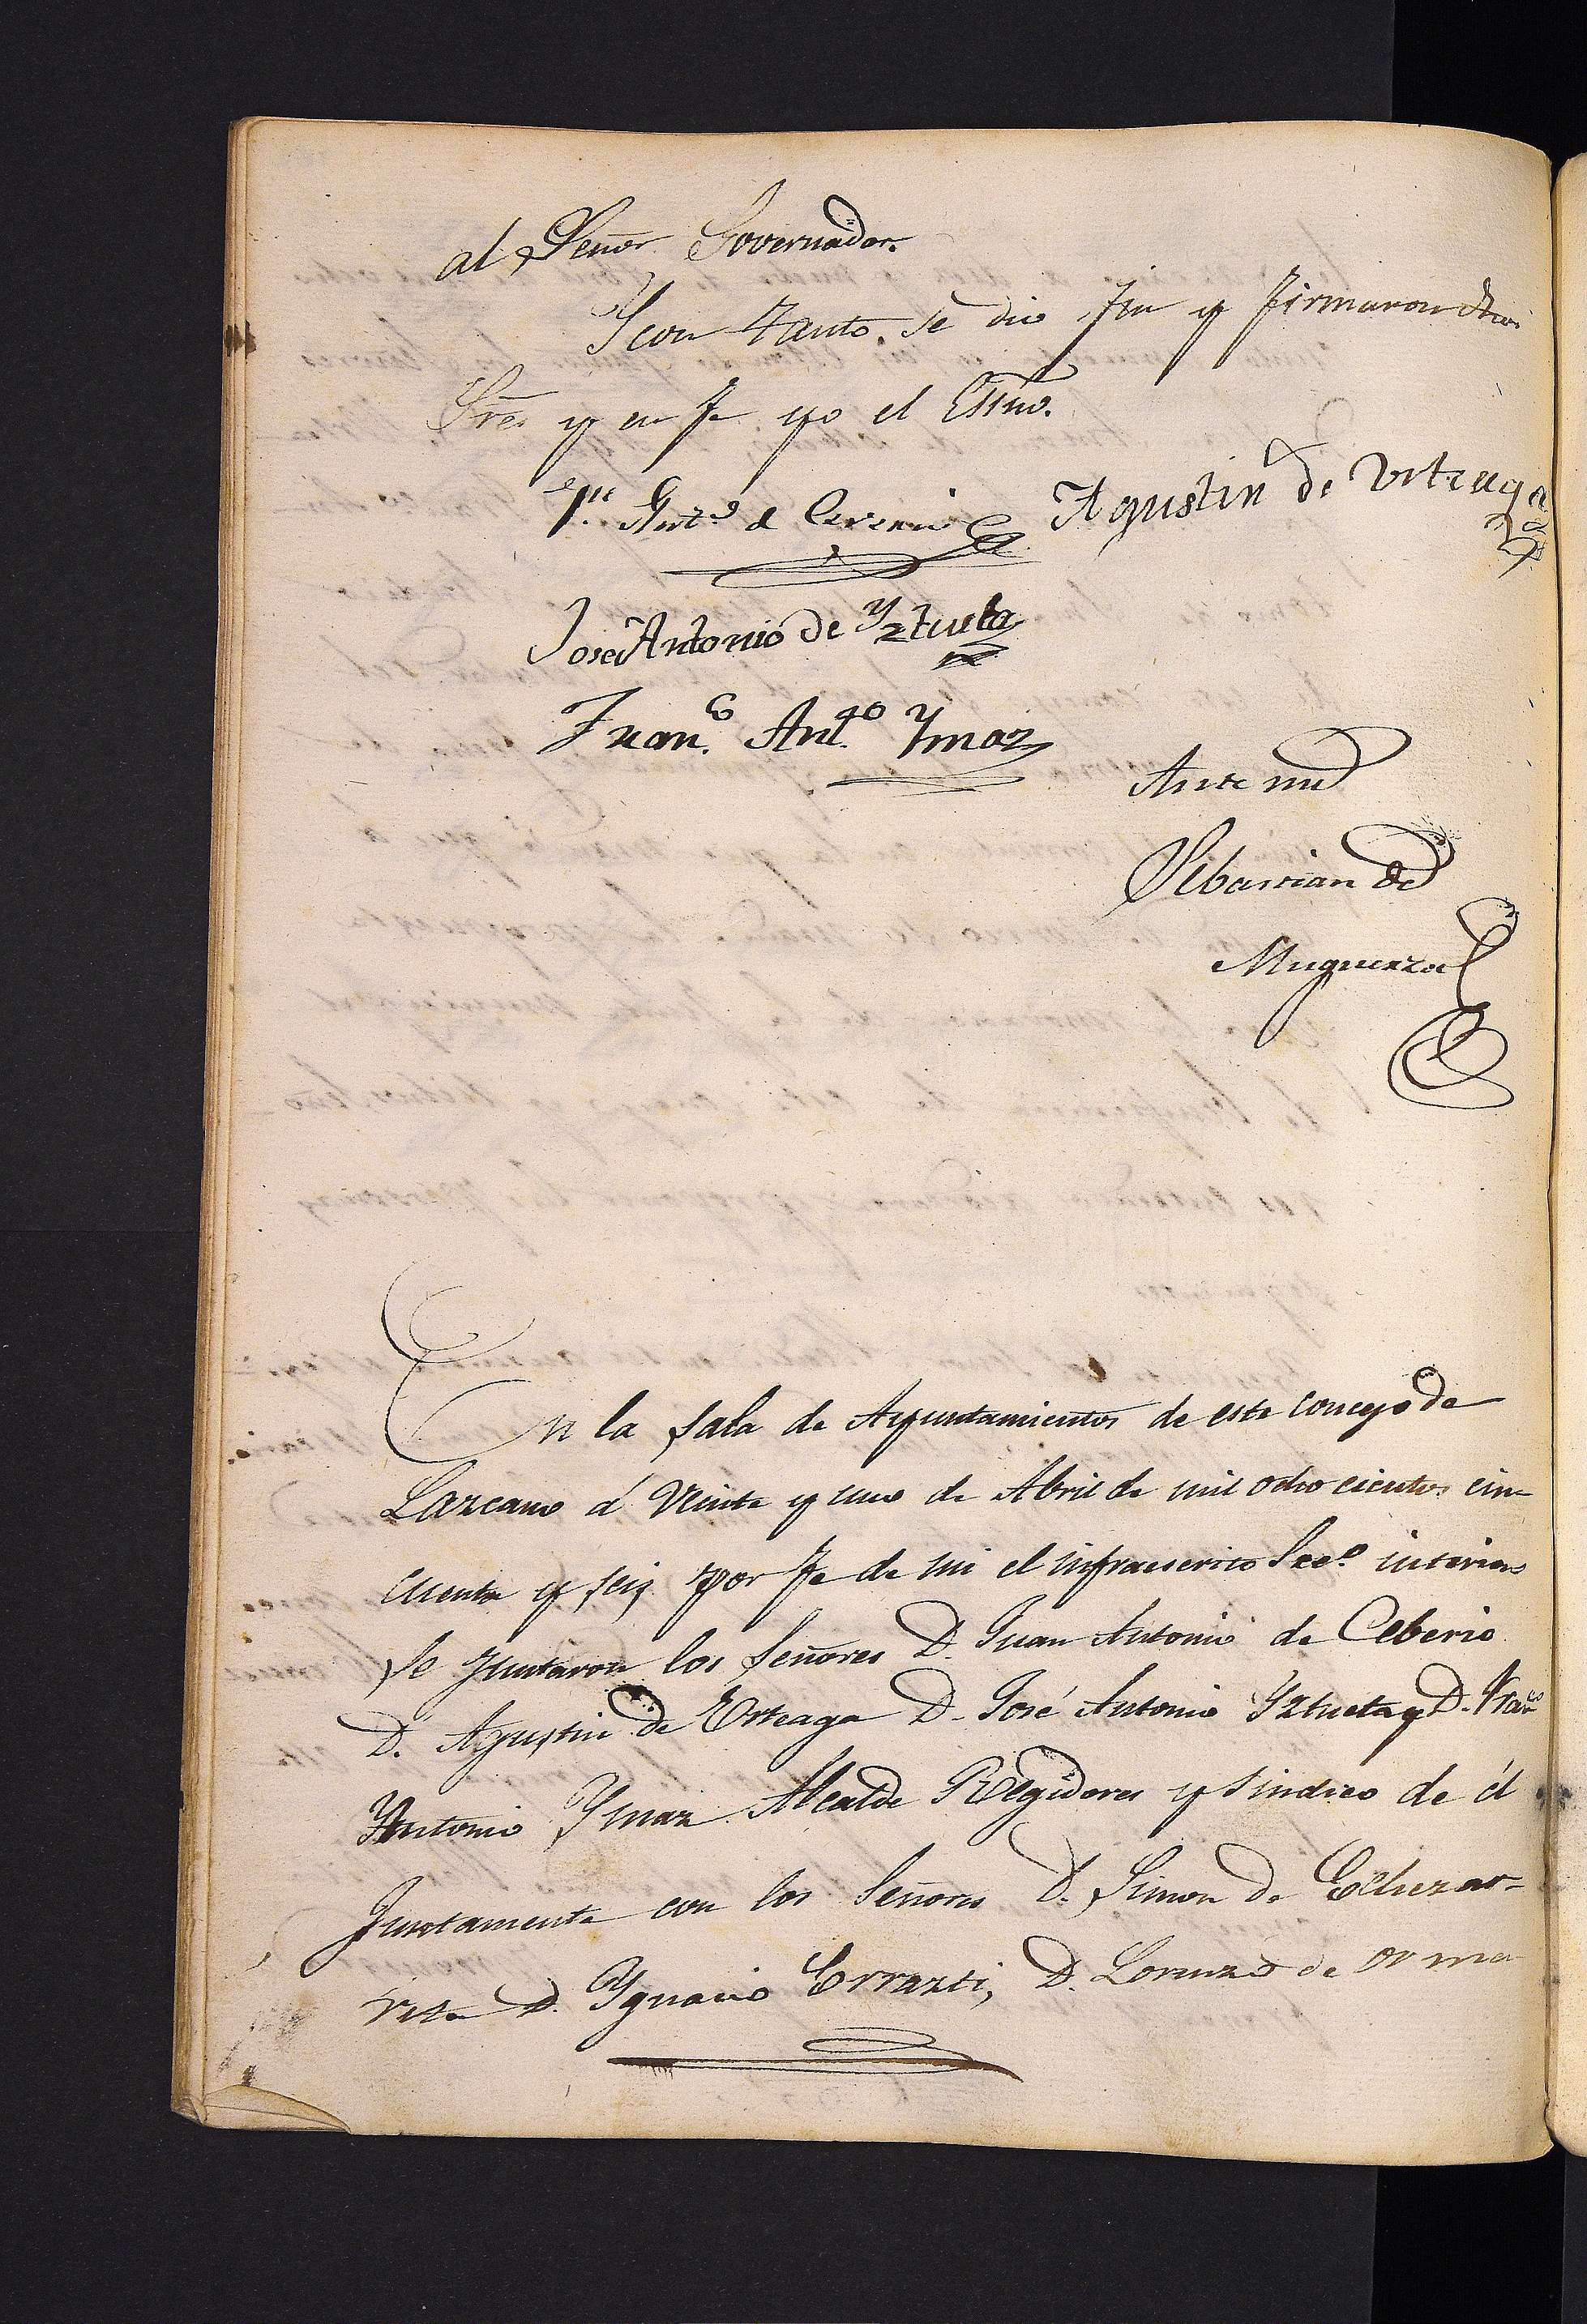 al Señor Governador.
Y con tanto se dio fin y firmaron dhos
Sres y en fe yo el Essno.
Antº de Ceverio Agustin de Urteaga
José Antonio de Yztueta
Franco. Antto Ymaz
Ante mi
Sebastian de
Muguerza
En la sala de Ayuntamientos de este concejo de
Lazcano á Veinte y uno de Abril de mil ocho cientos cin-
cuenta y seis por fe de mi el infraescrito Sreº interino
se juntaron los señores D. Juan Antonio de Ceberio
D. Agustin de Urteaga D. José Antonio Yztueta y D. Franco
Antonio Ymaz Alcalde Regidores y sindico de él
Juntamente con los Señores D. Simon de Echezar-
reta D. Ygnacio Errazti, D. Lorenzo de Orma